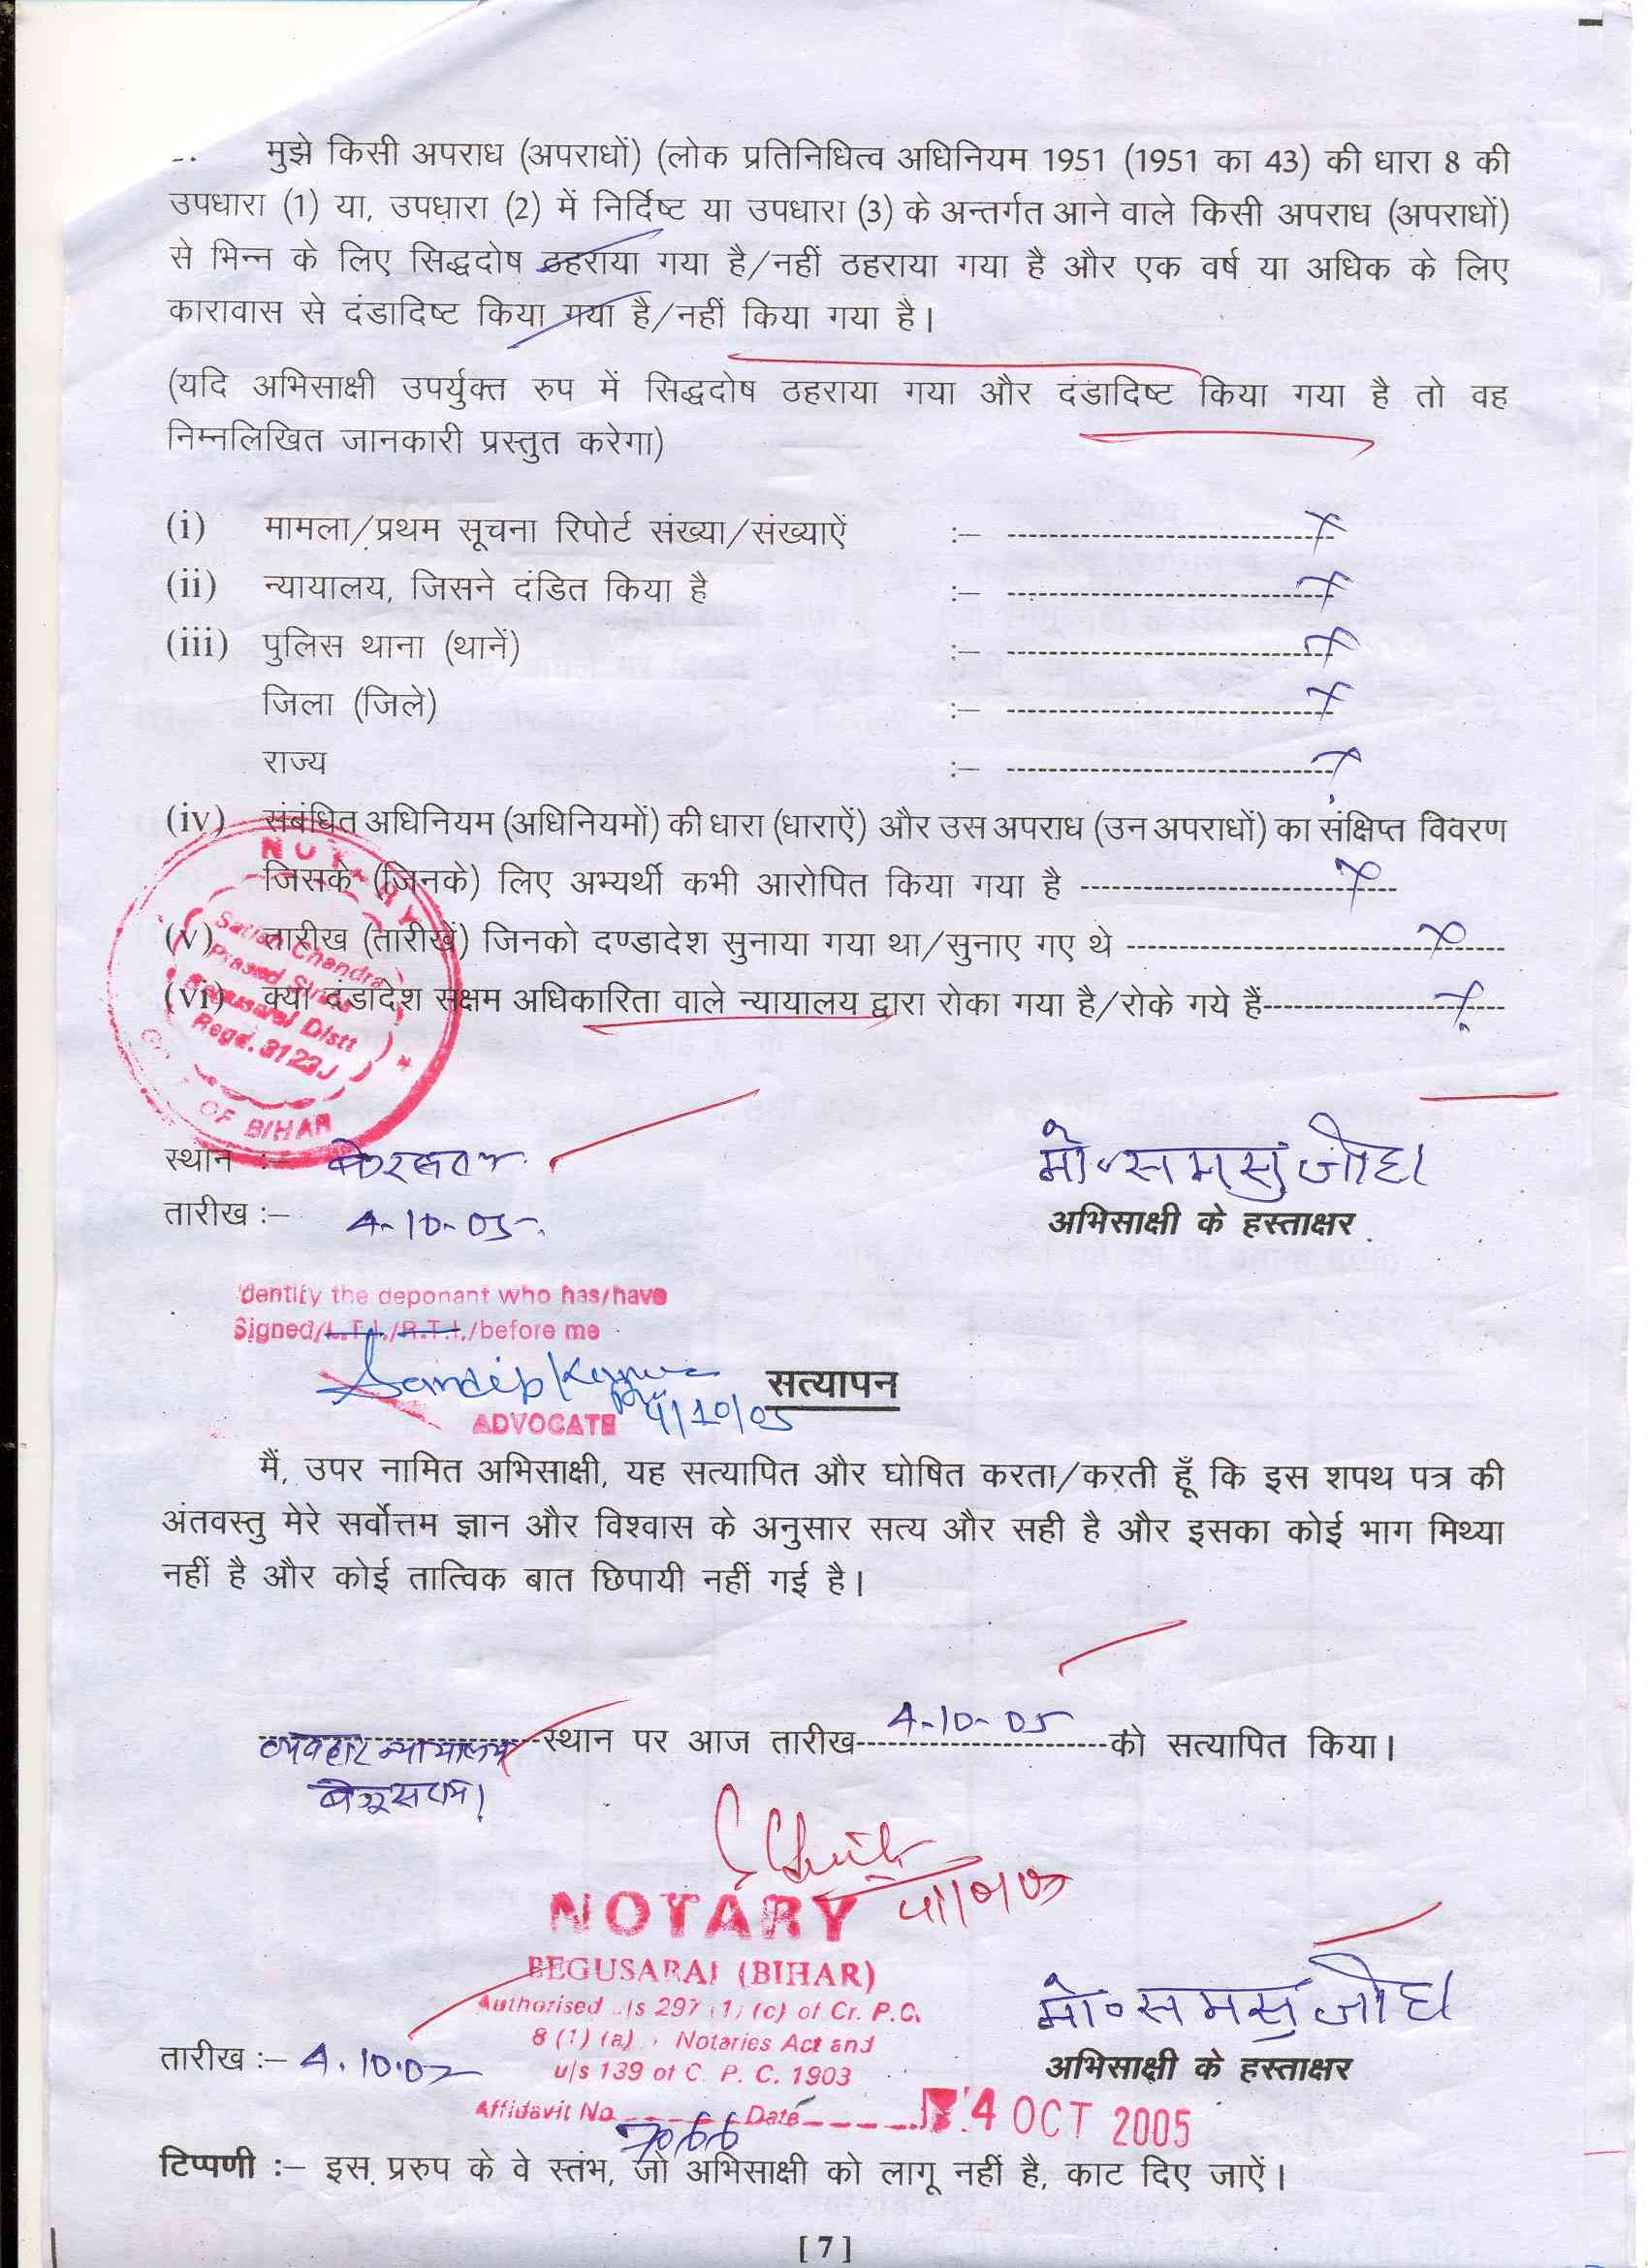 मुझे किसी अपराध (अपराधों) (लोक प्रतिनिधित्व अधिनियम 1951 (1951 का 43) की धारा 8 की
उपधारा (1) या, उपधारा (2) में निर्दिष्ट या उपधारा (3) के अन्तर्गत आने वाले किसी अपराध (अपराधों)
से भिन्न के लिए सिद्धदोष ठहराया गया है/नहीं ठहराया गया है और एक वर्ष या अधिक के लिए
कारावास से दंडादिष्ट किया गया है/नहीं किया गया है।
(यदि अभिसाक्षी उपर्युक्त रुप में सिद्धदोष ठहराया गया और दंडादिष्ट किया गया है तो वह
निम्नलिखित जानकारी प्रस्तुत करेगा)
(i) मामला/प्रथम सूचना रिपोर्ट संख्या/संख्याऐं :– ---------- X
(ii) न्यायालय, जिसने दंडित किया है :– ---------- X
(iii) पुलिस थाना (थानें) :– ---------- X
जिला (जिले) :– ---------- X
राज्य :– ---------- X
(iv) संबंधित अधिनियम (अधिनियमों) की धारा (धाराऐं) और उस अपराध (उन अपराधों) का संक्षिप्त विवरण
जिसके (जिनके) लिए अभ्यर्थी कभी आरोपित किया गया है ---------- X
(v) तारीख (तारीखें) जिनको दण्डादेश सुनाया गया था/सुनाए गए थे ---------- X
(vi) क्या दंडादेश सक्षम अधिकारिता वाले न्यायालय द्वारा रोका गया है/रोके गये हैं---------- X
NOTARY
Satish Chandra
Prasad
Begusarai Distt
Regd. 3123
OF BIHAR
स्थान :–
मो० समसु जोहा
तारीख :– 4-10-05
अभिसाक्षी के हस्ताक्षर
Identify the deponant who has/have
Signed/L.T.I./R.T.I./before me
Sandip Kumar
4/10/05
ADVOCATE
सत्यापन
मैं, उपर नामित अभिसाक्षी, यह सत्यापित और घोषित करता/करती हूँ कि इस शपथ पत्र की
अंतवस्तु मेरे सर्वोत्तम ज्ञान और विश्वास के अनुसार सत्य और सही है और इसका कोई भाग मिथ्या
नहीं है और कोई तात्विक बात छिपायी नहीं गई है।
व्यवहार न्यायालय स्थान पर आज तारीख 4-10-05 को सत्यापित किया।
बेगूसराय।
NOTARY
BEGUSARAI (BIHAR)
Authorised u/s 297 (1) (c) of Cr. P.C.
8 (1) (a) , Notaries Act and
u/s 139 of C. P. C. 1903
मो० समसु जोहा
तारीख :– 4.10.05
अभिसाक्षी के हस्ताक्षर
Affidavit No 7066 Date 4 OCT 2005
टिप्पणी :– इस प्ररुप के वे स्तंभ, जो अभिसाक्षी को लागू नहीं है, काट दिए जाऐं।
[ 7 ]